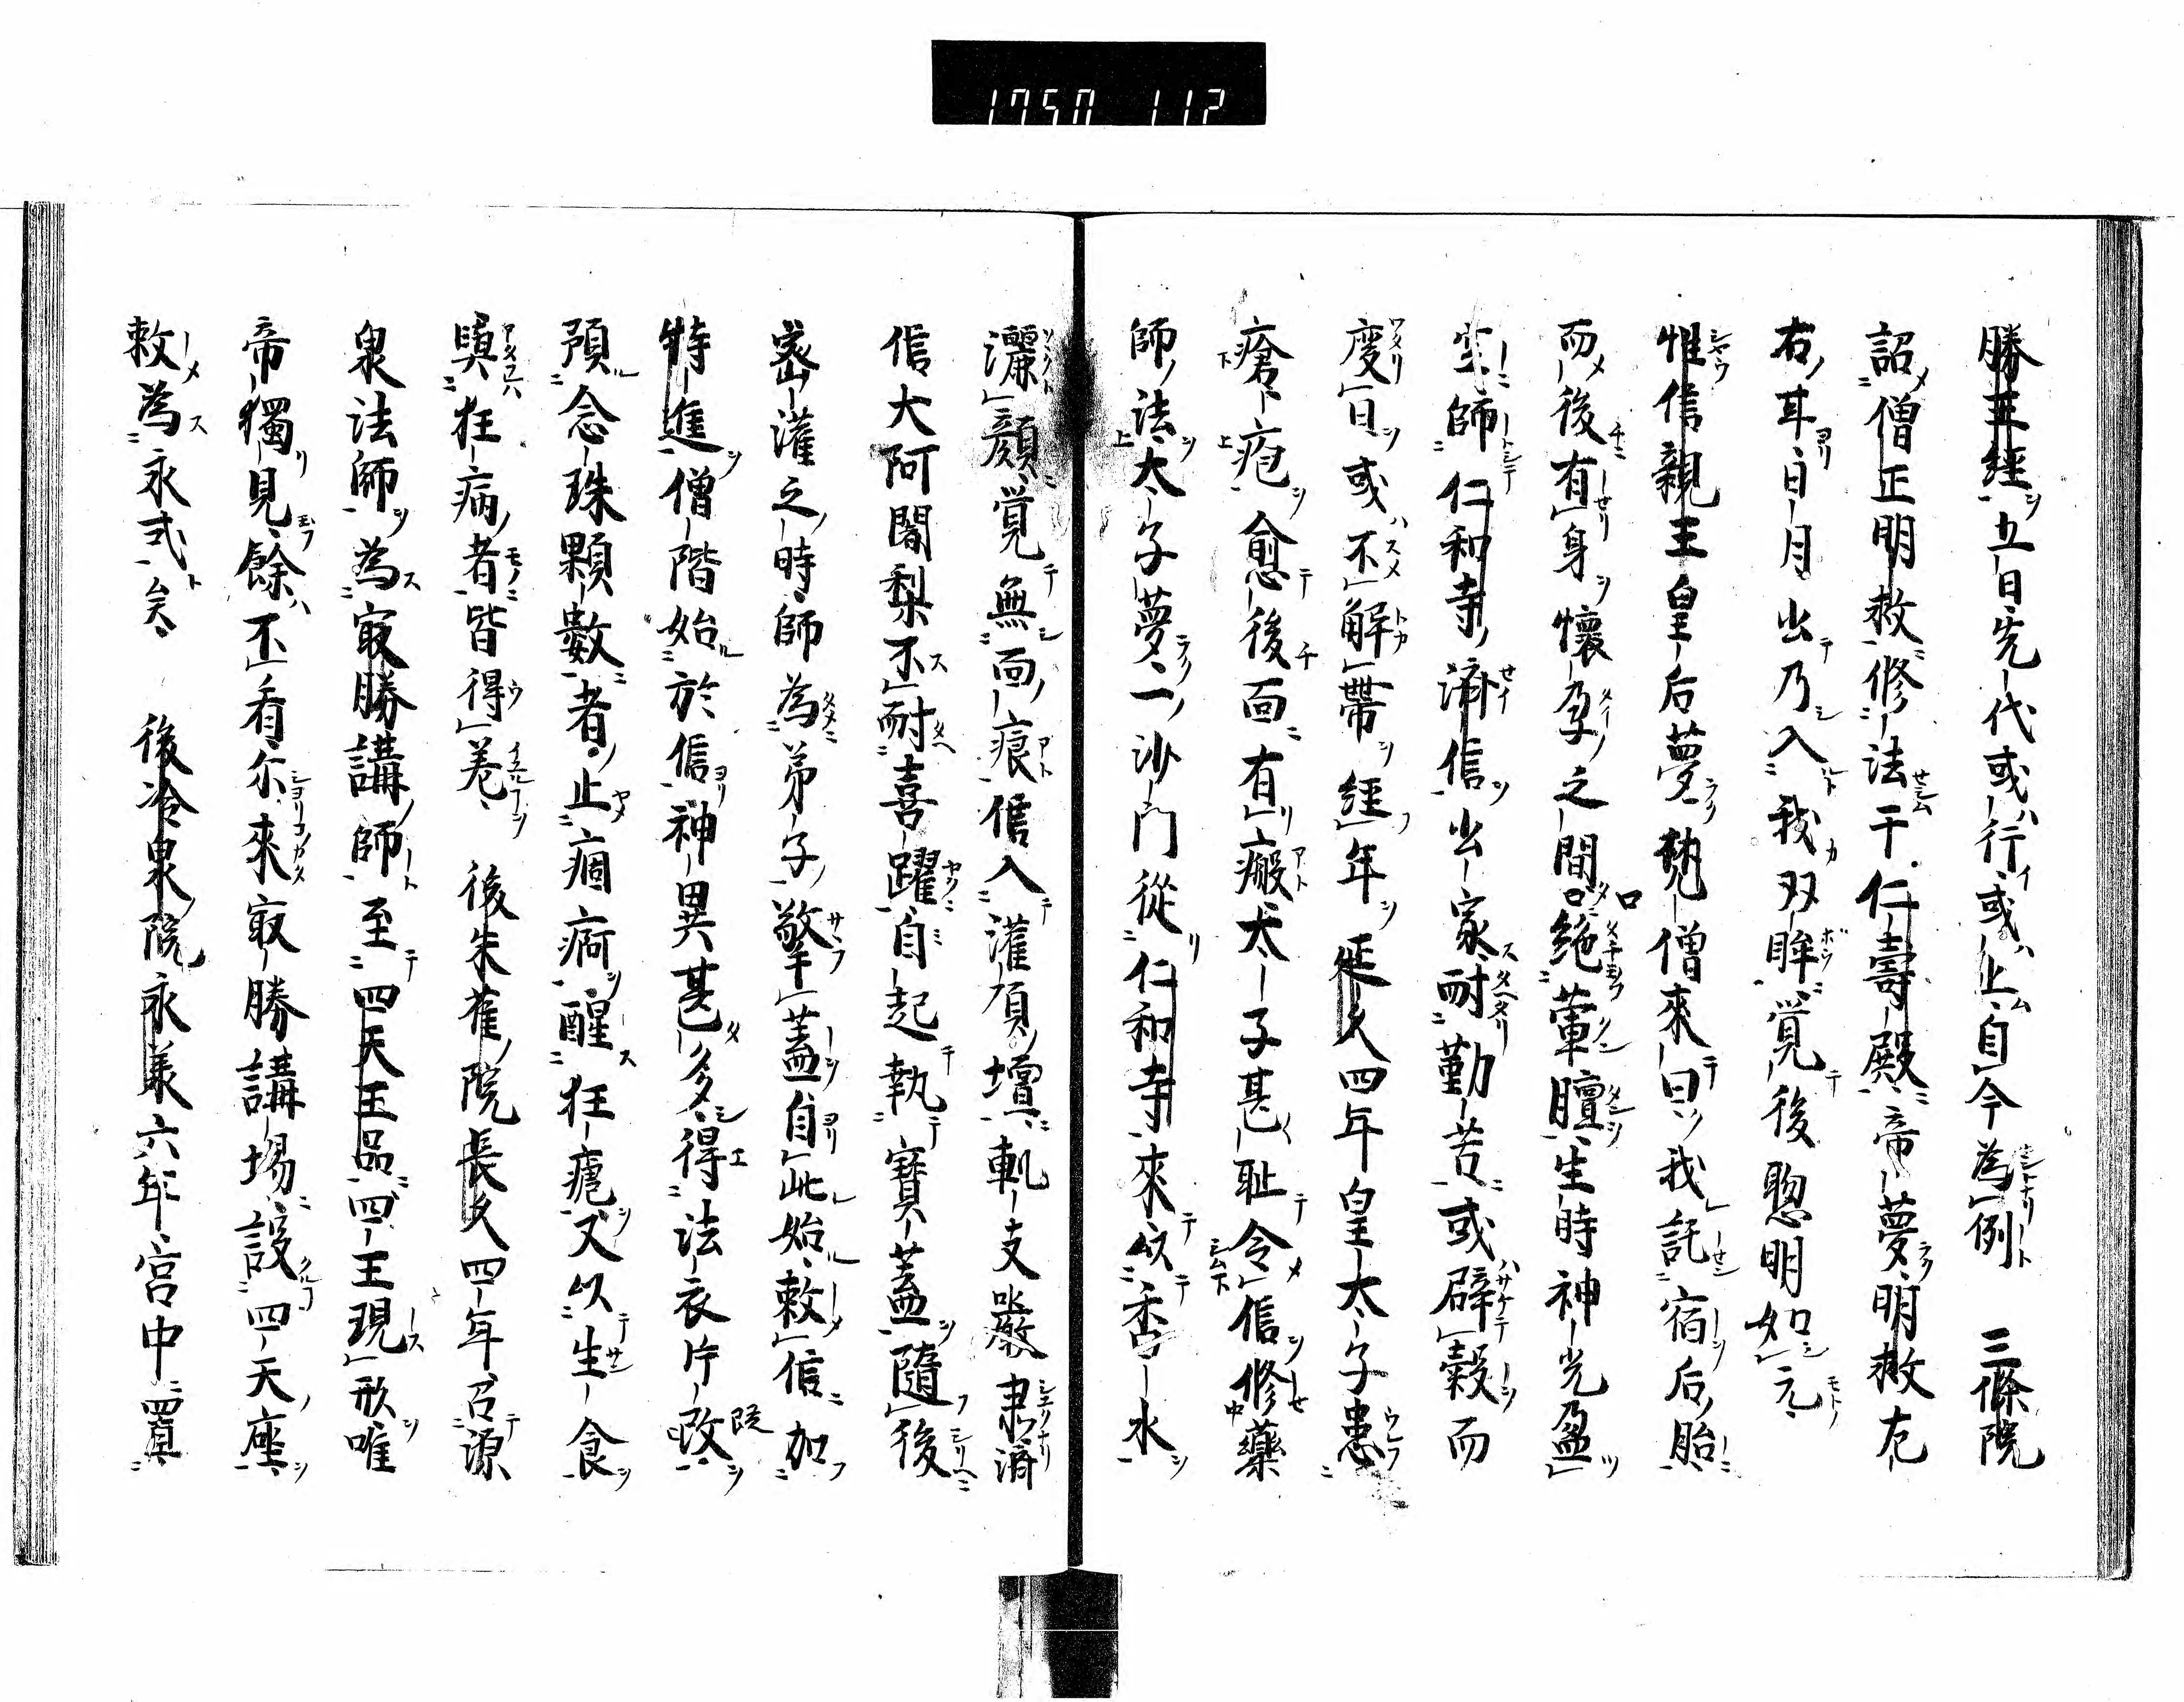 1750 112
勝王經五日先代或行或止自今為例　三條院
詔僧正明救修法于仁壽殿帝夢明救左
右耳日月出乃入我双眸覚後聰明如元
性信親王皇后夢䒭僧來曰我託宿后胎
而後有身懷孕之間口絶葷膻生時神光盈
室師仁和寺濟信出家耐勤苦或辟穀而
度日或不解帶經年延久四年皇太子患
瘡疱愈後面有瘢太子甚耻令信修藥
師法太子夢一沙門從仁和寺來以香水
灑顔覚無面痕信入灌頂壇軌支嚴隶濟
信大阿闍梨不耐喜躍自起執寶蓋隨後
密灌之時師為弟子擎蓋自此始敕信加
特進僧階始於信神異甚多得法衣片段
預念珠顆數者止痼痾醒狂㾮又以生食
與狂病者皆得差　後朱雀院長久四年召源
泉法師為冣勝講師至四天王品四王現形唯
帝獨見餘不看尓來冣勝講場設四天座
敕為永式矣　後冷泉院永義六年宮中置